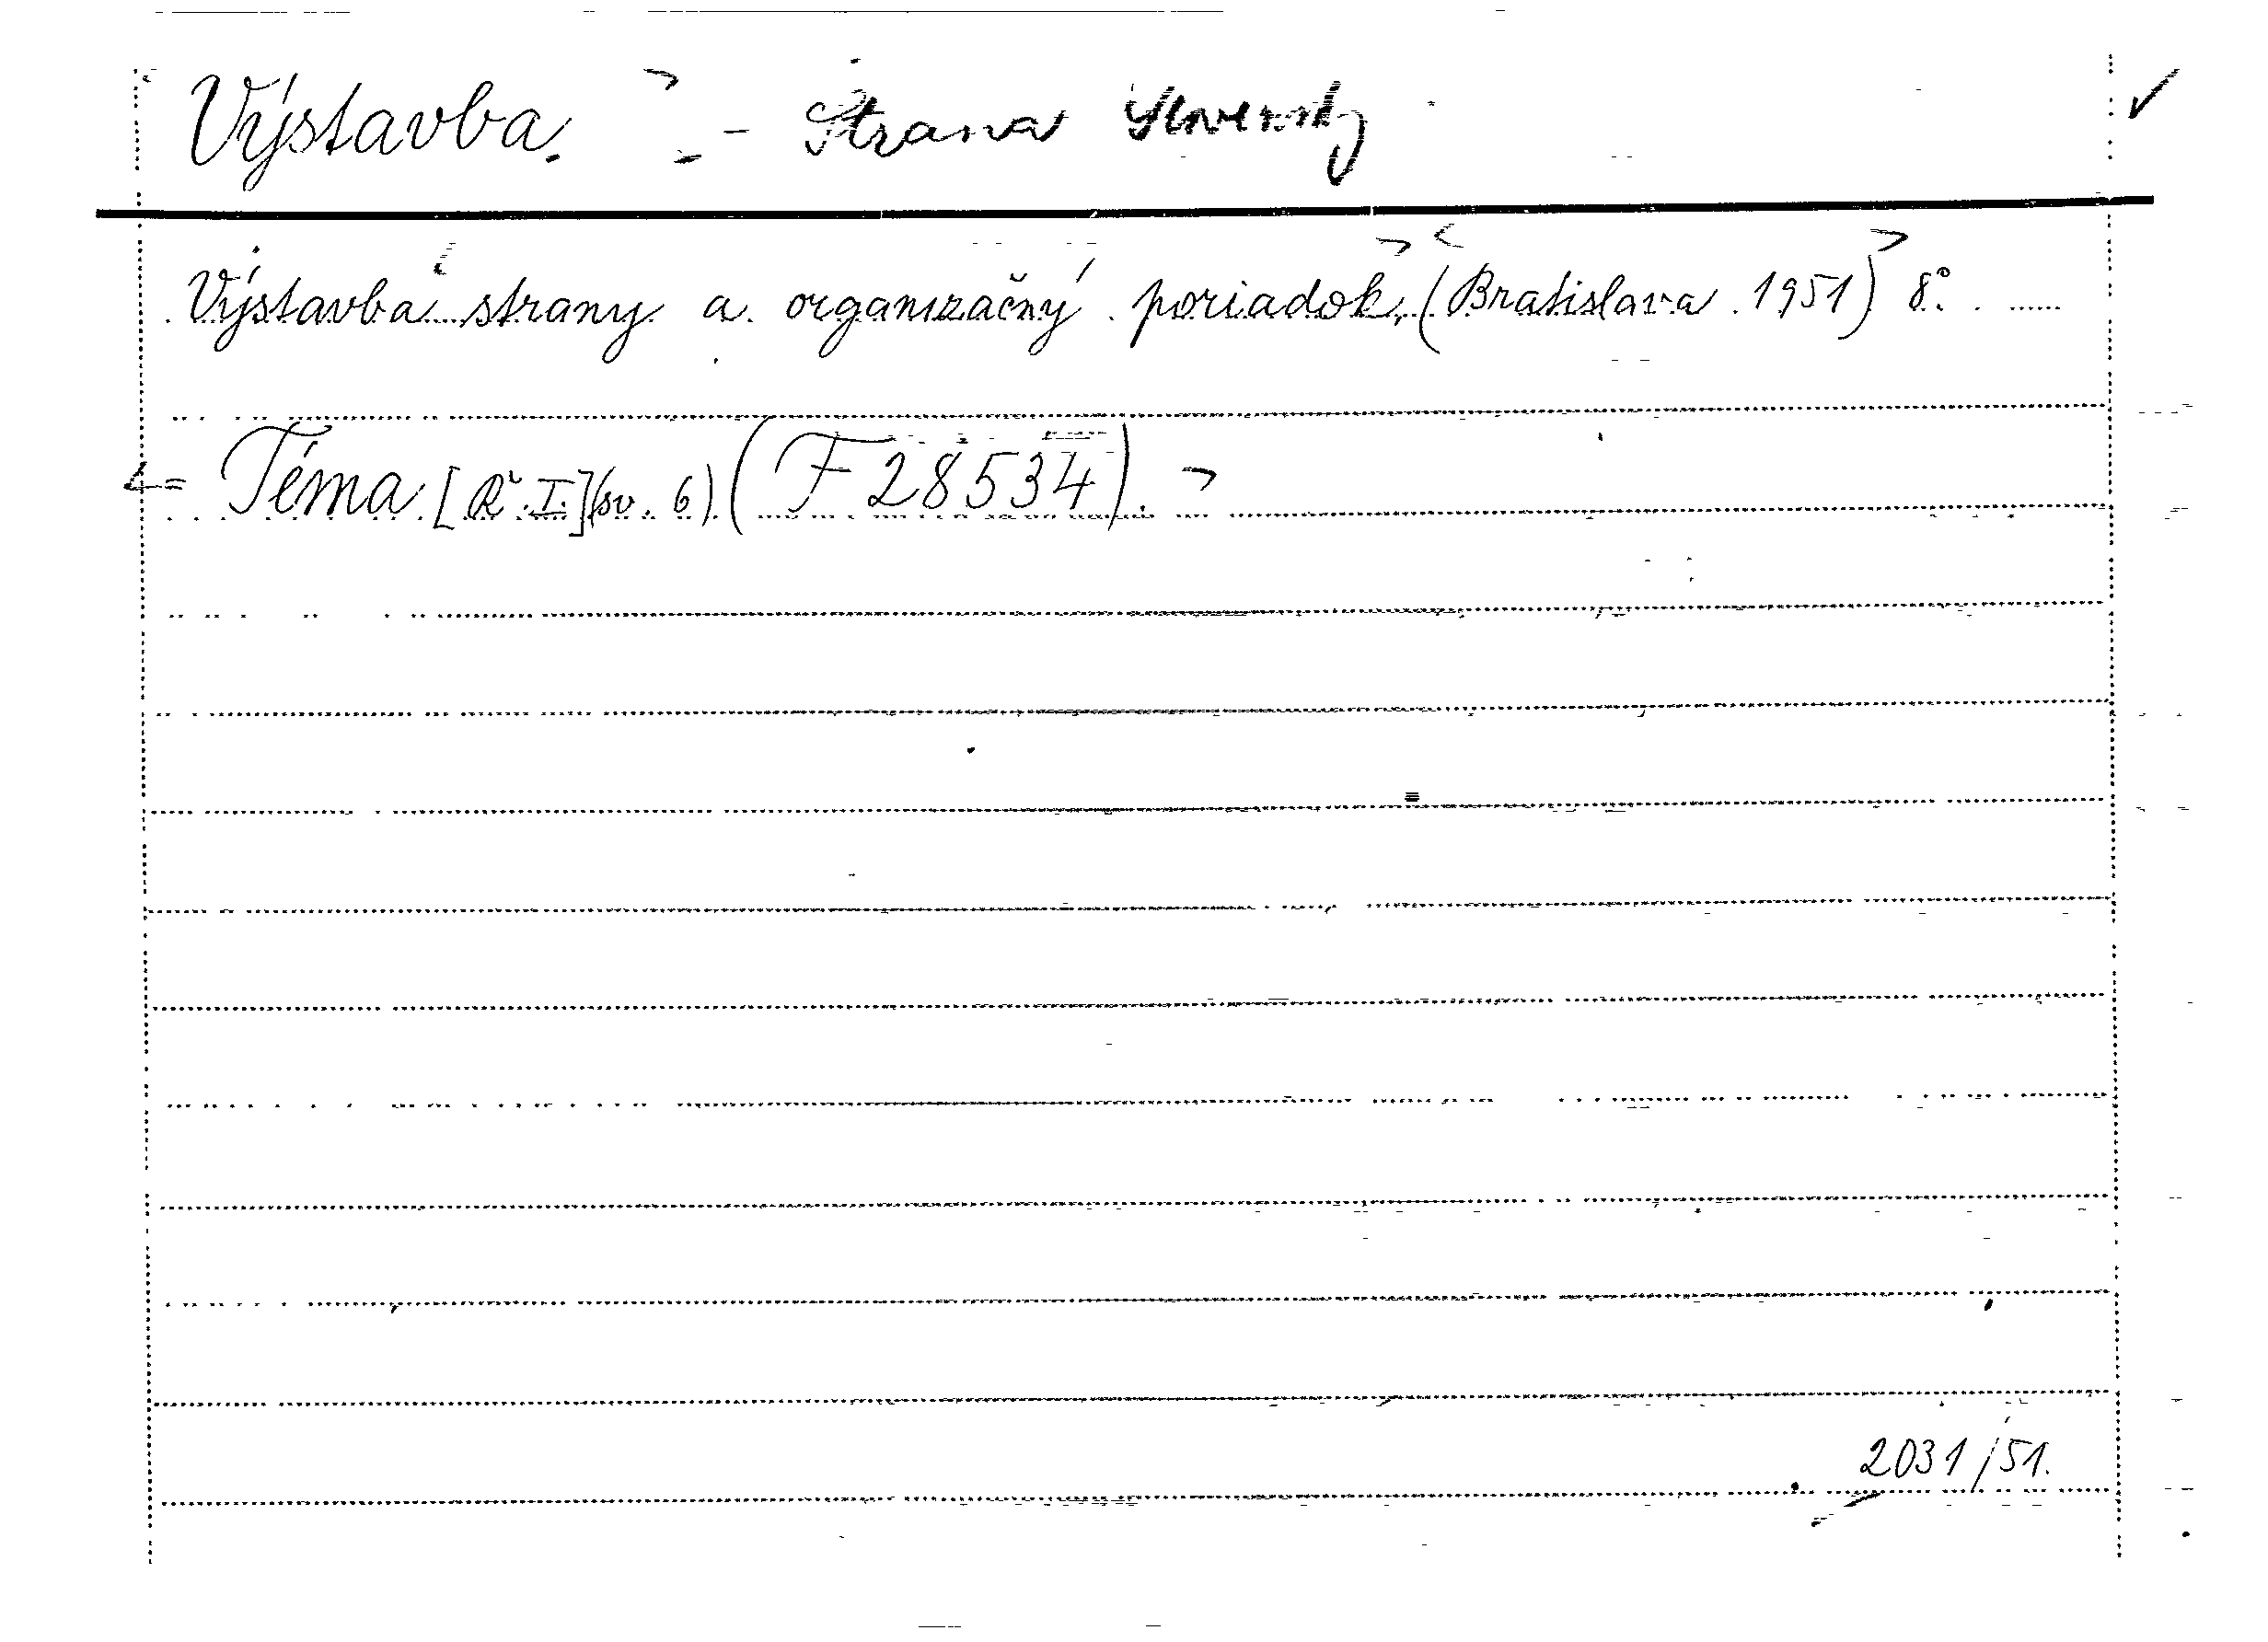 Výstavba. - Strana Slovensky ✓
Výstavba strany a organizačný poriadok, (Bratislava 1951) 8°.
= Téma [R. I.] (sv. 6) (F 28534).
2031/51.